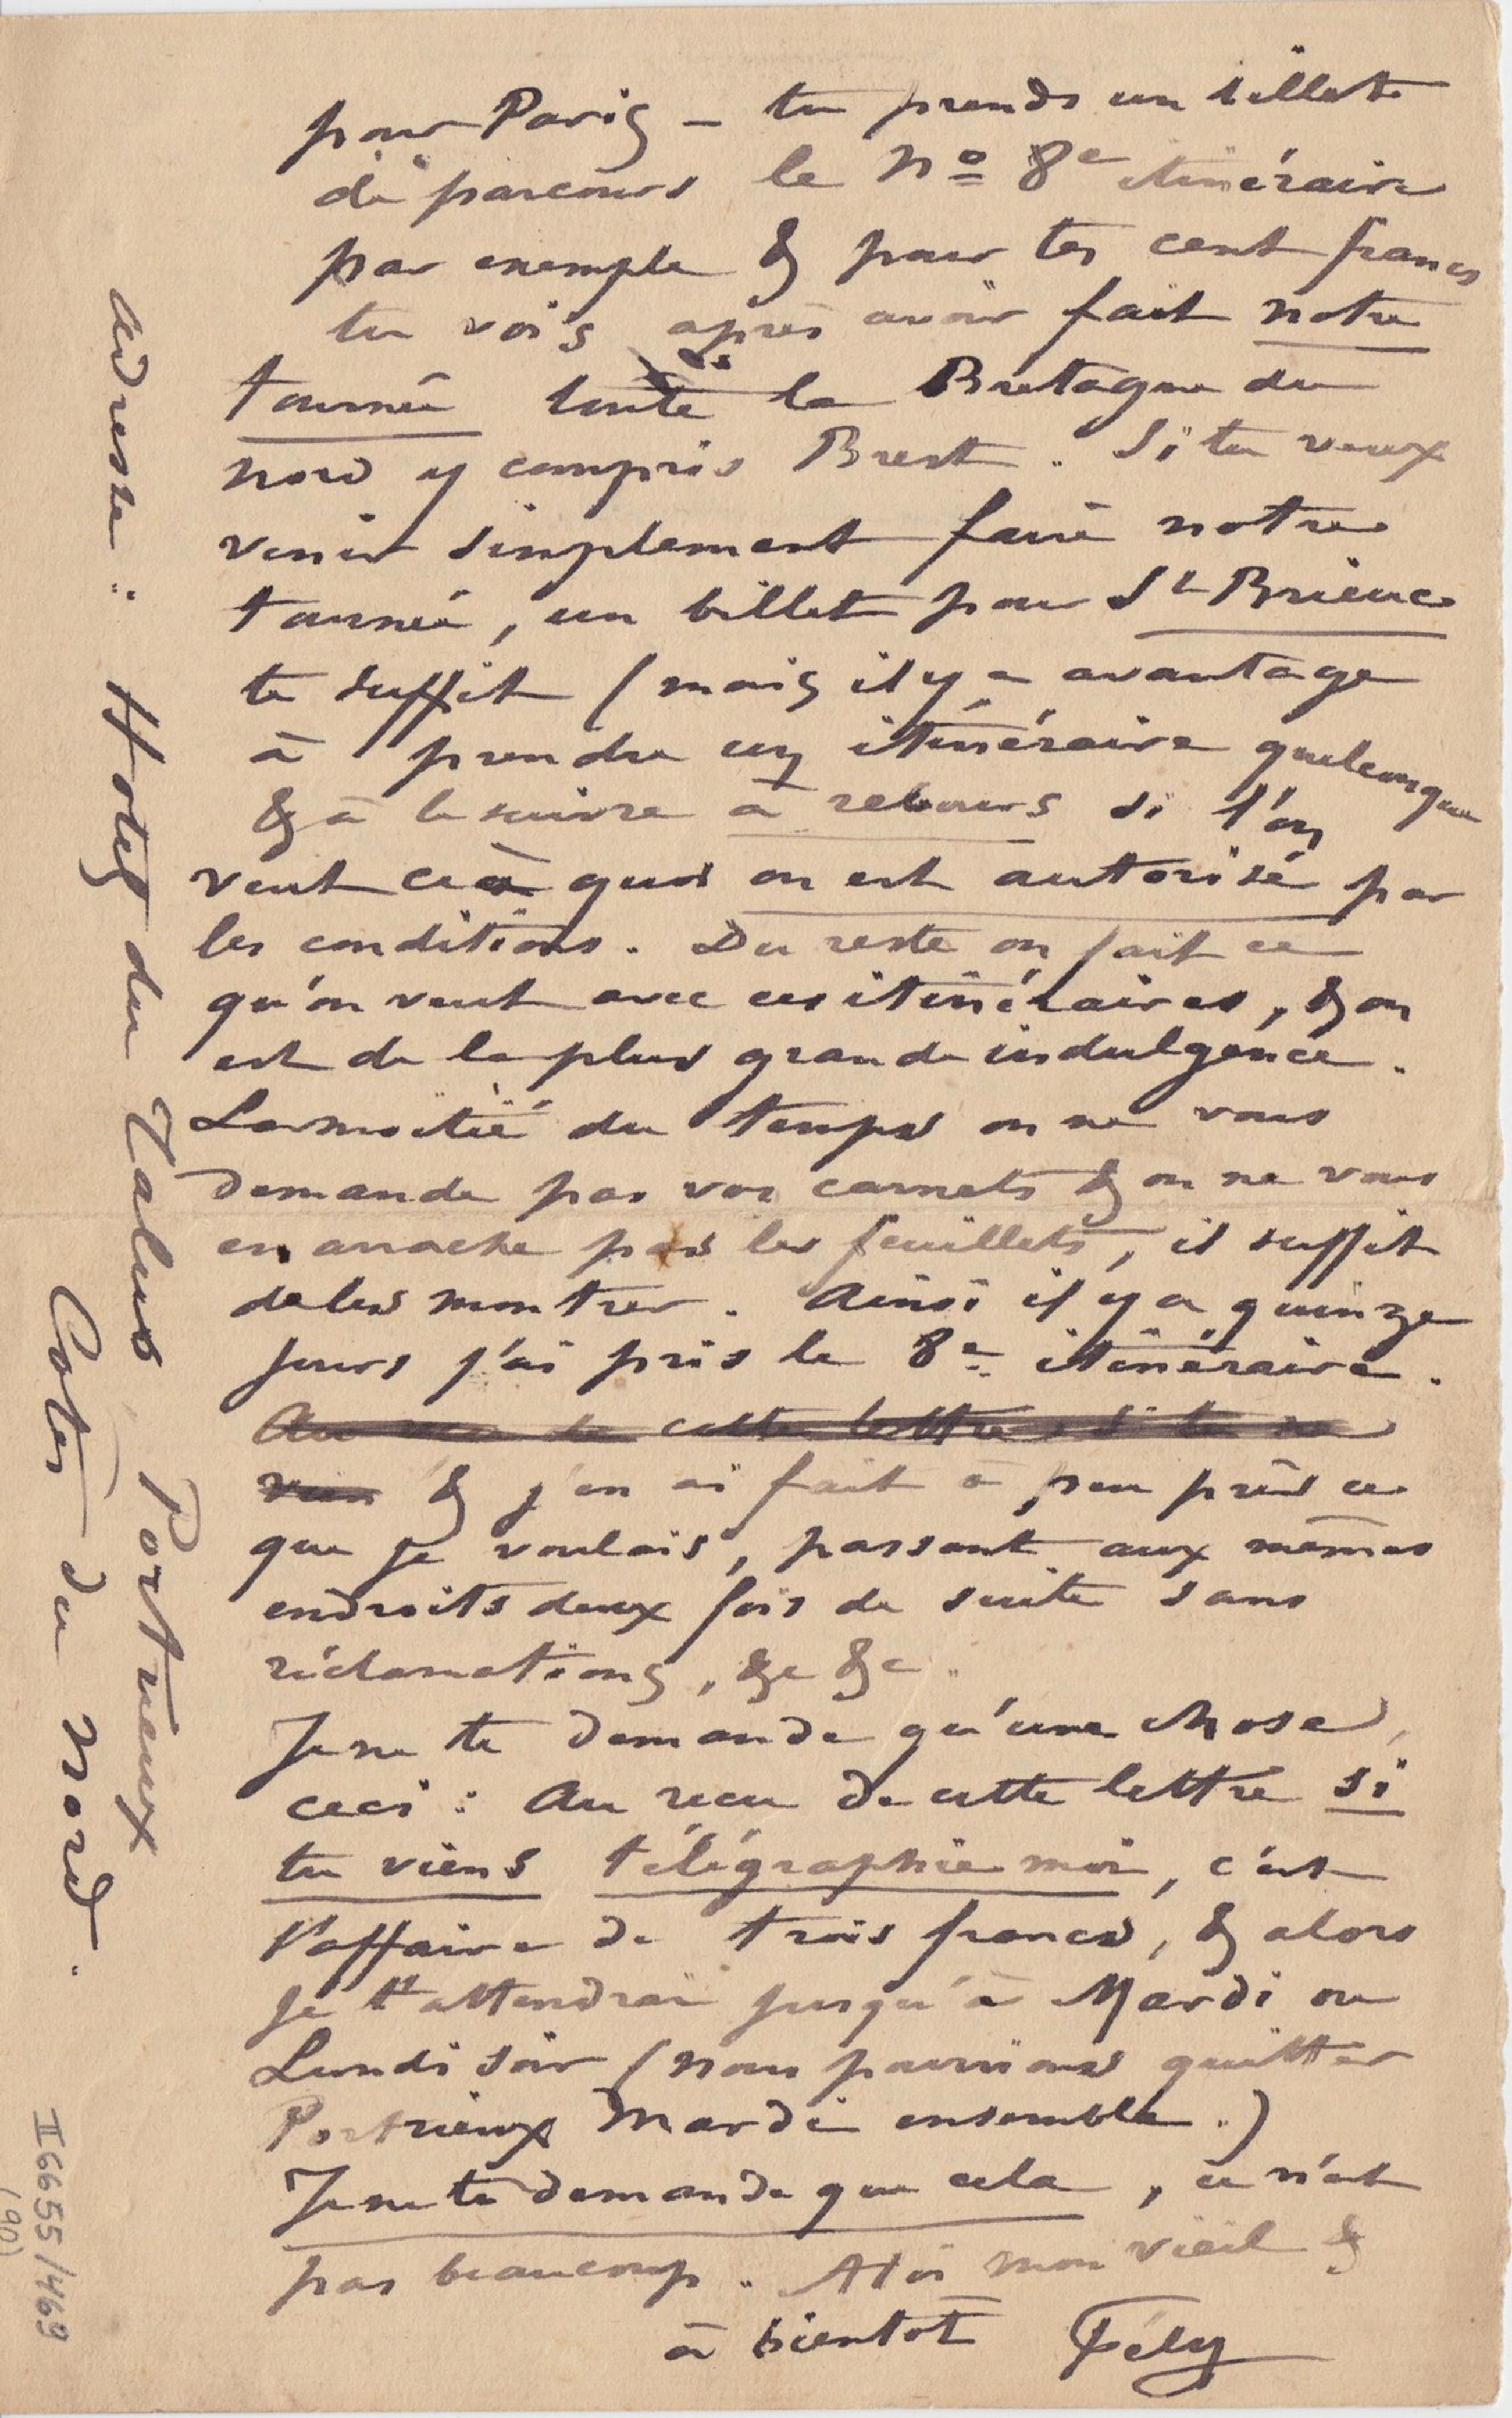 pour Paris – tu prends un billet
de parcours le Nº 8e itinéraire
par exemple & pour tes cent francs
tu vois après avoir fait notre
tournée toute la Bretagne du
Nord y compris Brest. Si tu veux
venir simplement faire notre
tournée, un billet pour St Brieuc
te suffit (mais il y a avantage
à prendre un itinéraire quelconque
& à le suivre à rebours si l'on
veut ce à quoi on est autorisé par
les conditions. Du reste on fait ce
qu'on veut avec ces itinéraires, & on
est de la plus grande indulgence.
La moitié du temps on ne vous
demande pas vos carnets & on ne vous
en arrache pas les feuillets, il suffit
de les montrer. Ainsi il y a quinze
jours j'ai pris le 8e itinéraire.
cette lettre si tu
& j'en ai fait à peu près ce
que je voulais, passant aux mêmes
endroits deux fois de suite sans
réclamations, &c &c.
Je ne te demande qu'une chose,
ceci : Au reçu de cette lettre si
tu viens télégraphie moi, c'est
l'affaire de trois francs, & alors
je t'attendrai jusqu'à Mardi ou
Lundi soir (nous pourrions quitter
Portrieux Mardi ensemble.)
Je ne te demande que cela, ce n'est
pas beaucoup. A toi mon vieil &
à bientôt Fély
adresse : Hotel du Talus Portrieux
Côtes du Nord.
II 6655/469
(90)